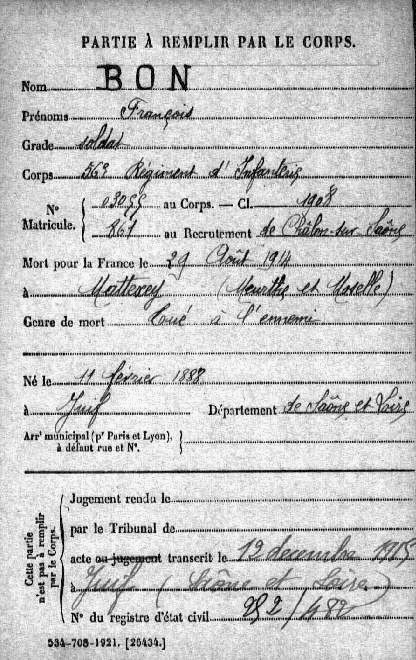 PARTIE À REMPLIR PAR LE CORPS.
Nom BON
Prénoms François
Grade soldat
Corps 56e Régiment d'Infanterie
N° Matricule. { 03055 au Corps. — Cl. 1908
861 au Recrutement de Châlon-sur-Saône
Mort pour la France le 29 Août 1914
à Mattexey (Meurthe et Moselle)
Genre de mort Tué à l'ennemi
Né le 11 février 1888
à Juif Département de Saône et Loire
Arrt municipal (pr Paris et Lyon), à défaut rue et N°. }
Cette partie n'est pas à remplir par le Corps.
Jugement rendu le
par le Tribunal de
acte ou jugement transcrit le 12 decembre
à Juif (Saône et Loire)
N° du registre d'état civil
534-708-1921. [26434.]